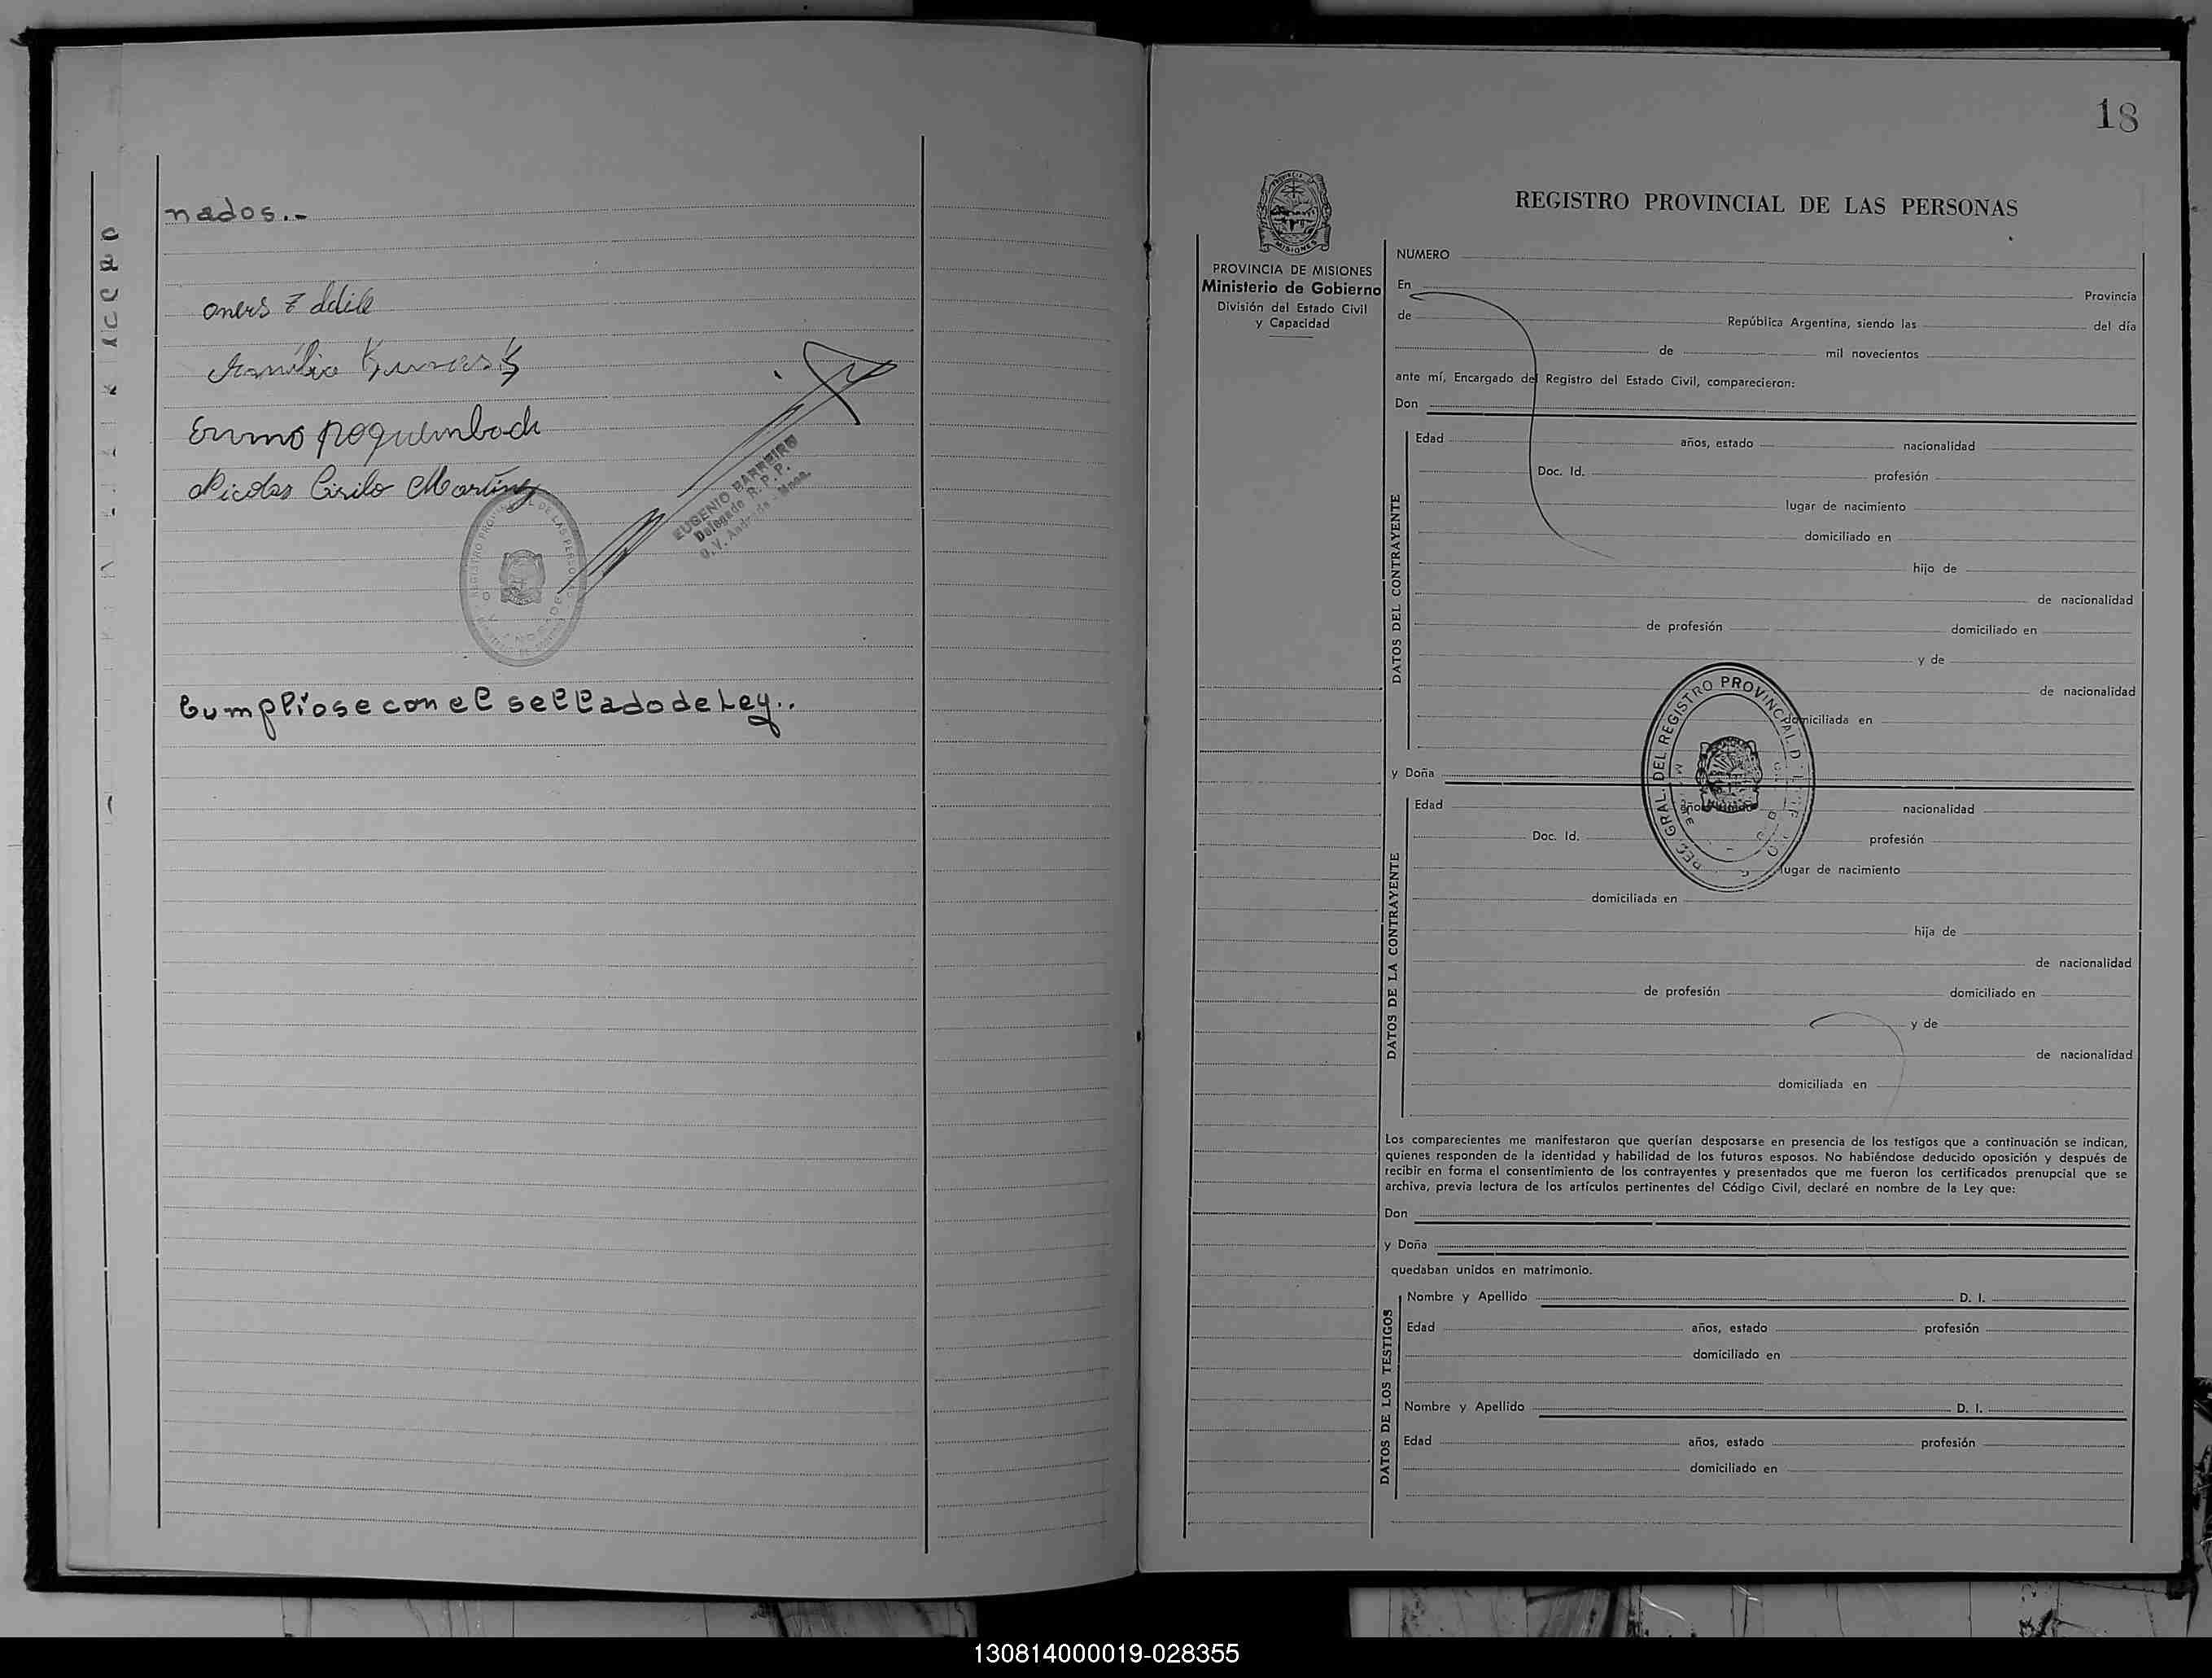 nados.-
Nicolas Cirilo Martinez
EUGENIO BARREIRO
Delegado R. P. P.
Cumplióse con el sellado de Ley..
18
PROVINCIA DE MISIONES
Ministerio de Gobierno
División del Estado Civil
y Capacidad
REGISTRO PROVINCIAL DE LAS PERSONAS
NUMERO
En Provincia
de República Argentina, siendo las del día
de mil novecientos
ante mí, Encargado del Registro del Estado Civil, comparecieron:
Don
DATOS DEL CONTRAYENTE
Edad años, estado nacionalidad
Doc. Id. profesión
lugar de nacimiento
domiciliado en
hijo de
de nacionalidad
de profesión domiciliado en
y de
de nacionalidad
domiciliada en
y Doña
DATOS DE LA CONTRAYENTE
Edad años, estado nacionalidad
Doc. Id. profesión
lugar de nacimiento
domiciliada en
hija de
de nacionalidad
de profesión domiciliado en
y de
de nacionalidad
domiciliada en
DEL REGISTRO PROVINCIAL
Los comparecientes me manifestaron que querían desposarse en presencia de los testigos que a continuación se indican,
quienes responden de la identidad y habilidad de los futuros esposos. No habiéndose deducido oposición y después de
recibir en forma el consentimiento de los contrayentes y presentados que me fueron los certificados prenupcial que se
archiva, previa lectura de los artículos pertinentes del Código Civil, declaré en nombre de la Ley que:
Don
y Doña
quedaban unidos en matrimonio.
DATOS DE LOS TESTIGOS
Nombre y Apellido D. I.
Edad años, estado profesión
domiciliado en
Nombre y Apellido D. I.
Edad años, estado profesión
domiciliado en
130814000019-028355